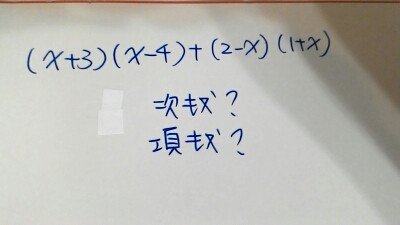 (x+3)(x-4)+(2-x)(1+x)
次数?
項数?